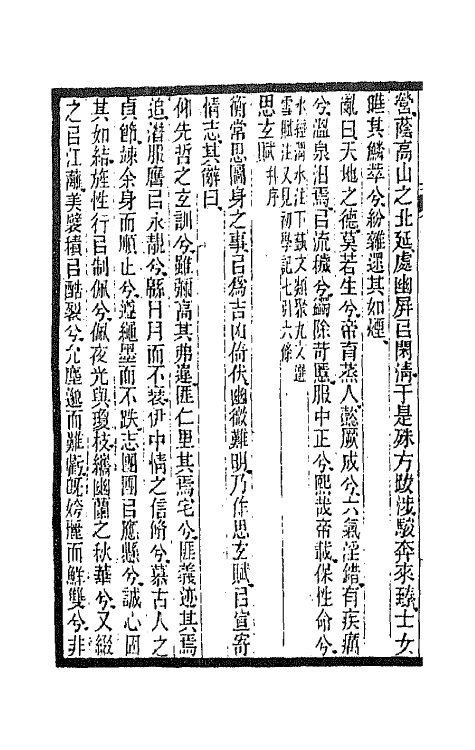 營蔭高山之北延處幽屏㠯閑淸于是殊方跋涉駿奔來臻士女
曄其鱗萃兮紛雜遝其如煙
亂曰天地之德莫若生兮帝育蒸人懿厥成兮六氣淫錯有疾癘
兮溫泉汩焉㠯流穢兮蠲除苛慝服中正兮熙哉帝載保性命兮
水經渭水注下藝文類聚九文選
雪賦注又見初學記七引六條
思玄賦幷序
衡常思圖身之事㠯爲吉凶倚伏幽微難明乃作思玄賦㠯宣寄
情志其辭曰
仰先哲之玄訓兮雖彌高其弗違匪仁里其焉宅兮匪義迹其焉
追潛服膺㠯永靚兮緜日月而不衰伊中情之信脩兮慕古人之
貞節竦余身而順止兮遵繩墨而不跌志團團㠯應懸兮誠心固
其如結旌性行㠯制佩兮佩夜光與瓊枝纗幽蘭之秋華兮又綴
之㠯江蘺美襞積㠯酷裂兮允塵邈而難虧旣姱麗而鮮雙兮非